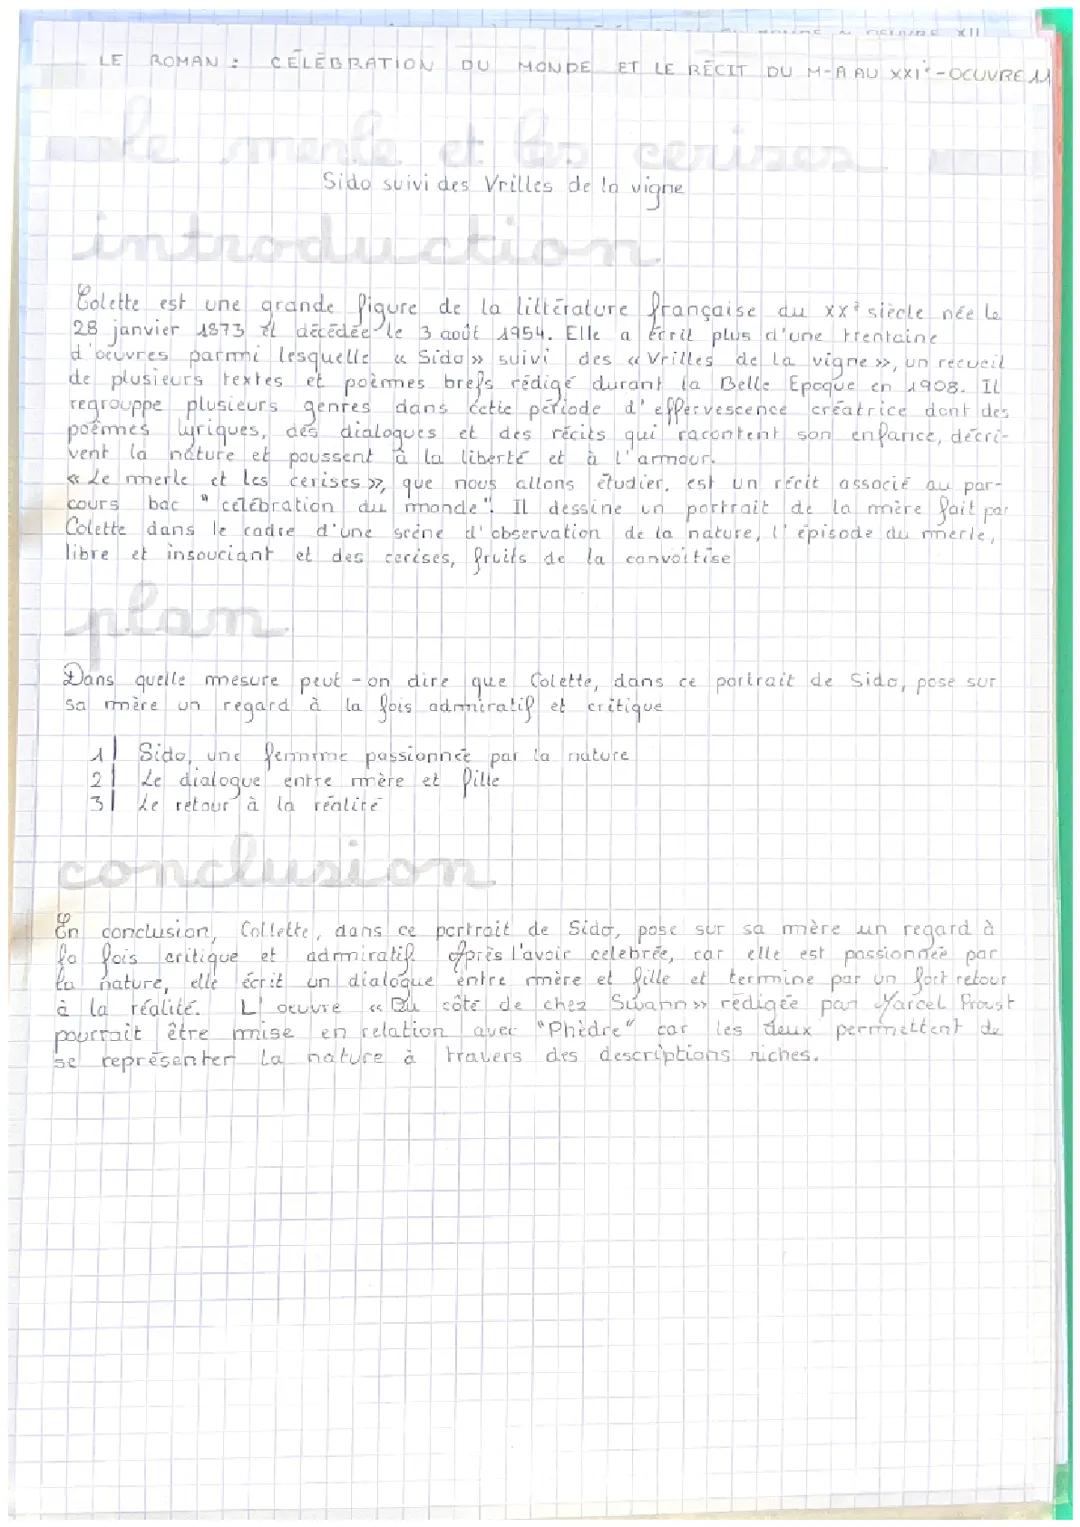 LE ROMAN : CÉLÉBRATION DU MONDE ET LE RÉCIT DU M-A AU XXIe - OCUVRE 11
le merle et les cerises
Sido suivi des Vrilles de la vigne
introduction
Colette est une grande figure de la littérature française du XXe siècle née le
28 janvier 1873 et décédée le 3 août 1954. Elle a écrit plus d'une trentaine
d'œuvres parmi lesquelle « Sido » suivi des « Vrilles de la vigne », un recueil
de plusieurs textes et poèmes brefs rédigé durant la Belle Epoque en 1908. Il
regrouppe plusieurs genres dans cette période d'effervescence créatrice dont des
poèmes lyriques, des dialogues et des récits qui racontent son enfance, décri-
vent la nature et poussent à la liberté et à l'amour.
« Le merle et les cerises », que nous allons étudier, est un récit associé au par-
cours bac " célébration du monde". Il dessine un portrait de la mère fait par
Colette dans le cadre d'une scène d'observation de la nature, l'épisode du merle,
libre et insouciant et des cerises, fruits de la convoitise
plan
Dans quelle mesure peut-on dire que Colette, dans ce portrait de Sido, pose sur
sa mère un regard à la fois admiratif et critique
1| Sido, une femme passionnée par la nature
2| Le dialogue entre mère et fille
3| Le retour à la réalité
conclusion
En conclusion, Collette, dans ce portrait de Sido, pose sur sa mère un regard à
la fois critique et admiratif. Après l'avoir celebrée, car elle est passionnée par
la nature, elle écrit un dialogue entre mère et fille et termine par un fort retour
à la réalité. L'œuvre « Du côté de chez Swann » rédigée par Marcel Proust
pourrait être mise en relation avec "Phèdre" car les deux permettent de
se représenter la nature à travers des descriptions riches.